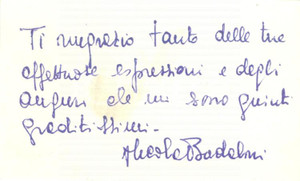 Ti ringrazio tanto delle tue
affettuose espressioni e degli
auguri che mi sono giunti
graditissimi.
Nicola Badaloni